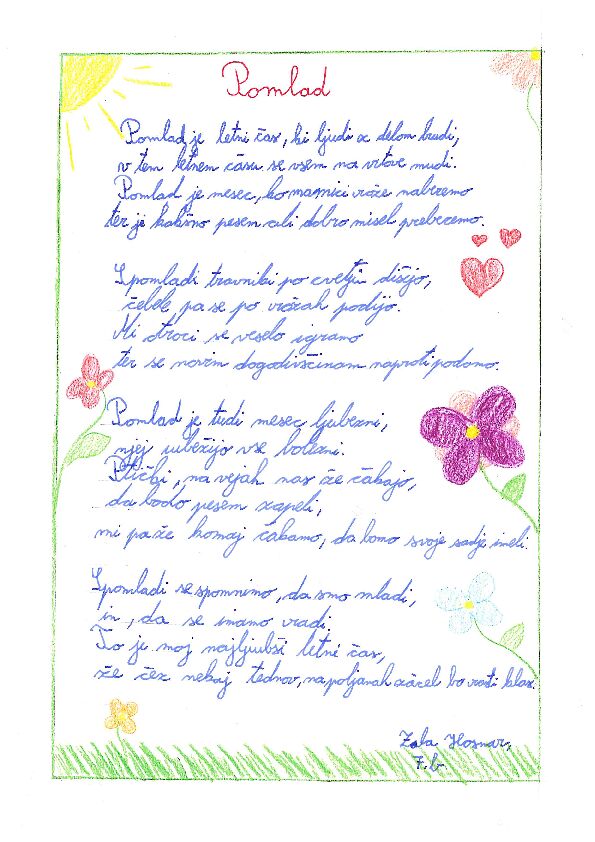 Pomlad
Pomlad je letni čas, ki ljudi z delom budi,
v tem letnem času se vsem na vrtove mudi.
Pomlad je mesec, ko mamici rože naberemo
ter ji kakšno pesem ali dobro misel preberemo.
Spomladi travniki po cvetju dišijo,
čebele pa se po rožah podijo.
Mi otroci se veselo igramo
ter se novim dogodivščinam naproti podamo.
Pomlad je tudi mesec ljubezni,
njej ubežijo vse bolezni.
Ptički, na vejah nas že čakajo,
da bodo pesem zapeli,
mi pa že komaj čakamo, da bomo svoje sadje imeli.
Spomladi se spomnimo, da smo mladi,
in, da se imamo radi.
To je moj najljubši letni čas,
že čez nekaj tednov, na poljanah začel bo rasti klas.
Zala
7.b